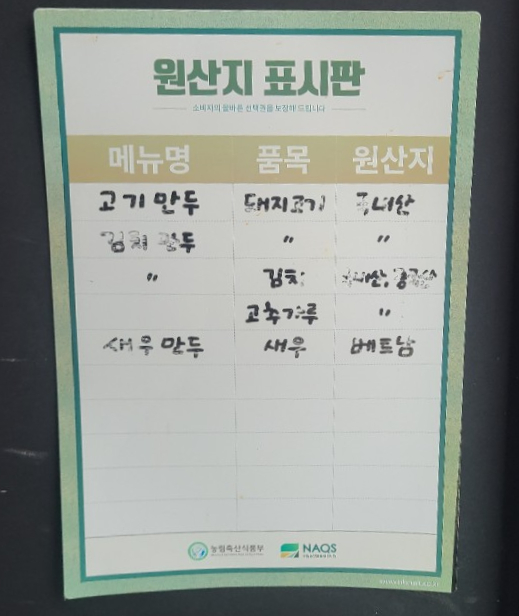 원산지 표시판
소비자의 올바른 선택권을 보장해 드립니다
메뉴명 품목 원산지
고기만두 돼지고기 국내산
김치만두 〃 〃
〃 김치 국내산, 중국산
고춧가루 〃
새우만두 새우 베트남
농림축산식품부 NAQS